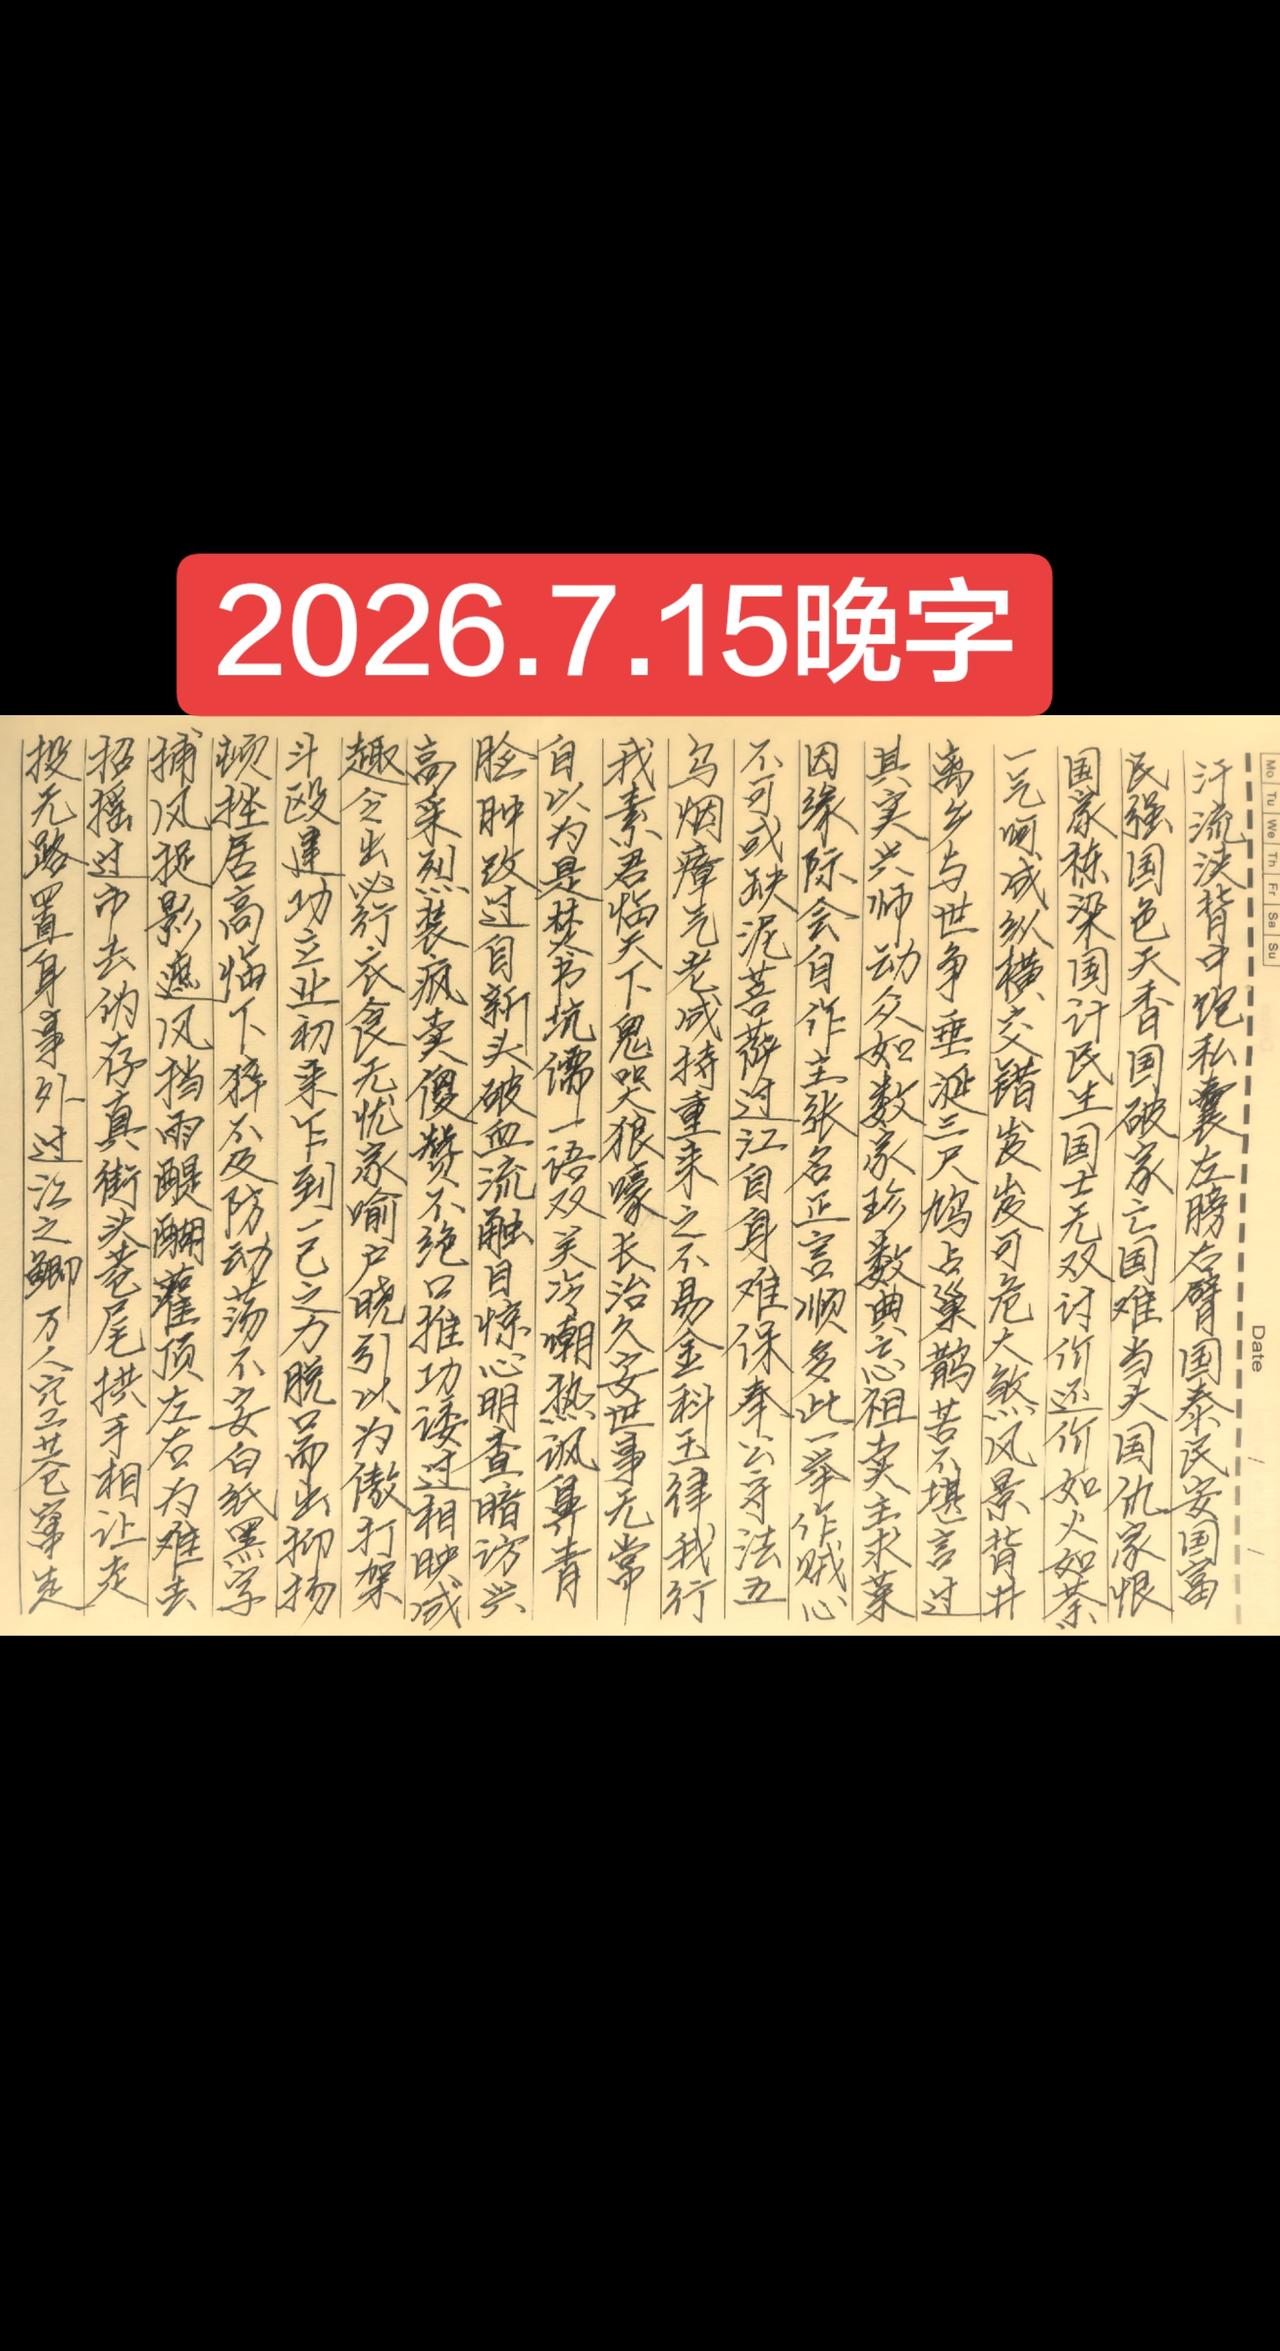 2026.7.15晚字
Mo Tu We Th Fr Sa Su
Date
汗流浃背中饱私囊左膀右臂国泰民安国富
民强国色天香国破家亡国难当头国仇家恨
国家栋梁国计民生国士无双讨价还价如火如荼
一气呵成纵横交错岌岌可危大煞风景背井
离乡与世争垂涎三尺鸠占巢鹊苦不堪言过
其实兴师动众如数家珍数典忘祖卖主求荣
因缘际会自作主张名正言顺多此一举作贼心
不可或缺泥菩萨过江自身难保奉公守法五
乌烟瘴气老成持重来之不易金科玉律我行
我素君临天下鬼哭狼嚎长治久安世事无常
自以为是焚书坑儒一语双关冷嘲热讽鼻青
脸肿改过自新头破血流触目惊心明查暗访兴
高采烈装疯卖傻赞不绝口推功诿过相映成
趣令出必行衣食无忧家喻户晓引以为傲打架
斗殴建功立业初来乍到一己之力脱口而出抑扬
顿挫居高临下猝不及防动荡不安白纸黑字
捕风捉影遮风挡雨醍醐灌顶左右为难去
招摇过市去伪存真街头巷尾拱手相让走
投无路置身事外过江之鲫万人空巷